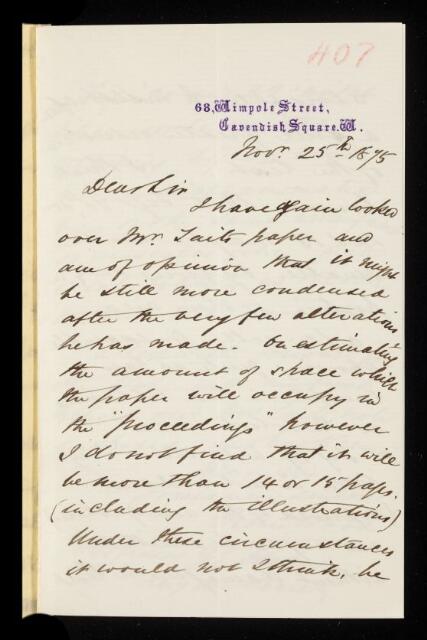 407
68, Wimpole Street,
Cavendish Square. W.
Novr. 25th 1875
Dear Sir
I have again looked
over Mr. Taits paper and
am of opinion that it might
be still more condensed
after the very few alterations
he has made. On estimating
the amount of space which
the paper will occupy in
the "Proceedings" however
I do not find that it will
be more than 14 or 15 pages.
(including the illustrations)
Under these circumstances
it would not I think, be